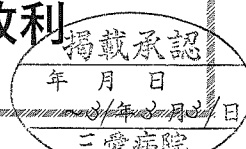 敗利
掲載承認
年 月 日
31年3月31日
三愛病院